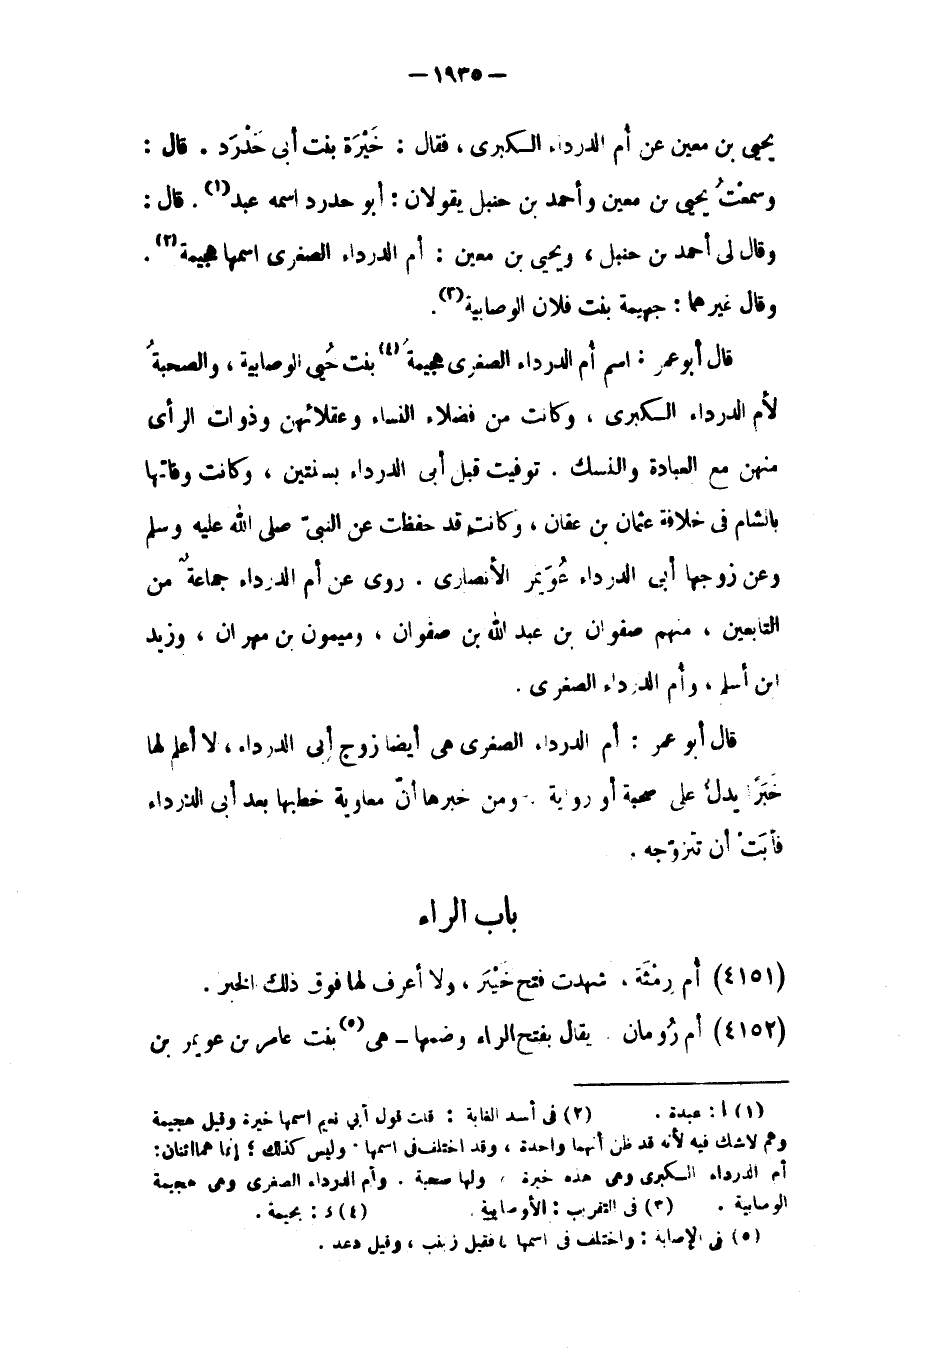 — ١٩٣٥ —
يحيى بن معين عن أم الدرداء الكبرى ، فقال : خَيْرَة بنت أبى حَدْرَد . قال :
وسمعْتُ يحيى بن معين وأحمد بن حنبل يقولان : أبو حدرد اسمه عبد(١) . قال :
وقال لى أحمد بن حنبل ، ويحيى بن معين : أم الدرداء الصغرى اسمها هجيمة(٢) .
وقال غيرهما : جهيمة بنت فلان الوصابية(٣) .
قال أبو عمر : اسم أم الدرداء الصغرى هجيمة(٤) بنت حُيى الوصابية ، والصحبةُ
لأم الدرداء الكبرى ، وكانت من فضلاء النساء وعقلائهن وذوات الرأى
منهن مع العبادة والنسك . توفيت قبل أبى الدرداء بسنتين ، وكانت وفاتها
بالشام فى خلافة عثمان بن عفان ، وكانت قد حفظت عن النبىّ صلى الله عليه وسلم
وعن زوجها أبى الدرداء عُوَيمر الأنصارى . روى عن أم الدرداء جماعةٌ من
التابعين ، منهم صفوان بن عبد الله بن صفوان ، وميمون بن مهران ، وزيد
ابن أسلم ، وأم الدرداء الصغرى .
قال أبو عمر : أم الدرداء الصغرى هى أيضا زوج أبى الدرداء ، لا أعلم لها
خَبَرًا يدلُّ على صحبة أو رواية . ومن خبرها أنّ معاوية خطبها بعد أبى الدرداء
فأبَتْ أن تتزوّجه .
باب الراء
(٤١٥١) أم رِمْثَة ، شهدت فتح خَيْبَر ، ولا أعرف لها فوق ذلك الخبر .
(٤١٥٢) أم رُومان . يقال بفتح الراء وضمها – هى(٥) بنت عامر بن عويمر بن
(١) أ : عبدة . (٢) فى أسد الغابة : قلت قول أبي نعيم اسمها خيرة وقيل هجيمة
وهم لاشك فيه لأنه قد ظن أنهما واحدة ، وقد اختلف فى اسمها . وليس كذلك ؛ إنما هما اثنتان :
أم الدرداء الكبرى وهى هذه خيرة ، ولها صحبة . وأم الدرداء الصغرى وهى هجيمة
الوصابية . (٣) فى التقريب : الأوصابية . (٤) ى : بحيمة .
(٥) فى الإصابة : واختلف فى اسمها فقيل زينب ، وقيل دعد .